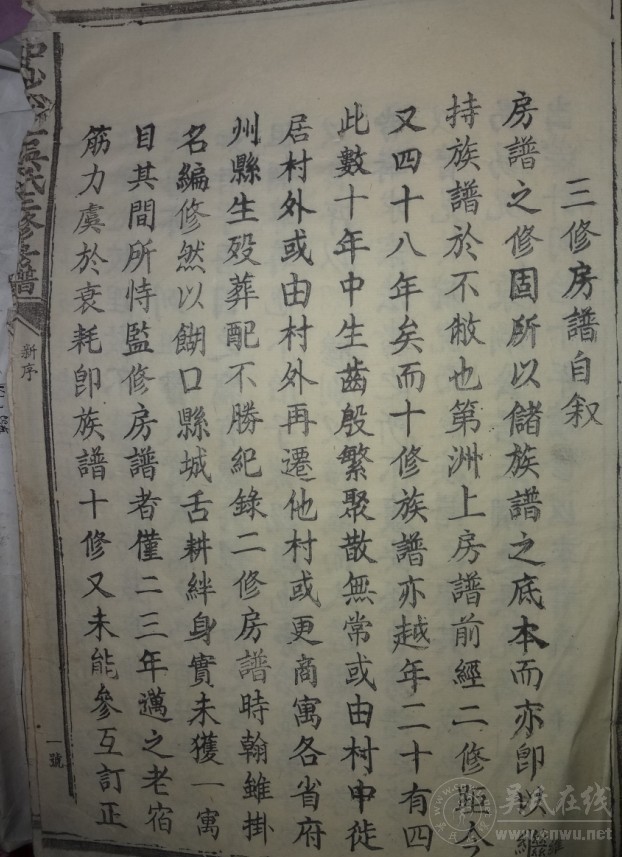 三修房譜自叙
房譜之修固所以儲族譜之底本而亦即以維
持族譜於不敝也第洲上房譜前經二修距今
又四十八年矣而十修族譜亦越年二十有四
此數十年中生齒殷繁聚散無常或由村中徙
居村外或由村外再遷他村或更商寓各省府
州縣生殁葬配不勝紀錄二修房譜時翰雖掛
名編修然以餬口縣城舌耕絆身實未獲一寓
目其間所恃監修房譜者僅二三年邁之老宿
筋力虞於衰耗即族譜十修又未能參互訂正
吳氏三修房譜
新序
一號
吴氏在线
www.cnwu.net